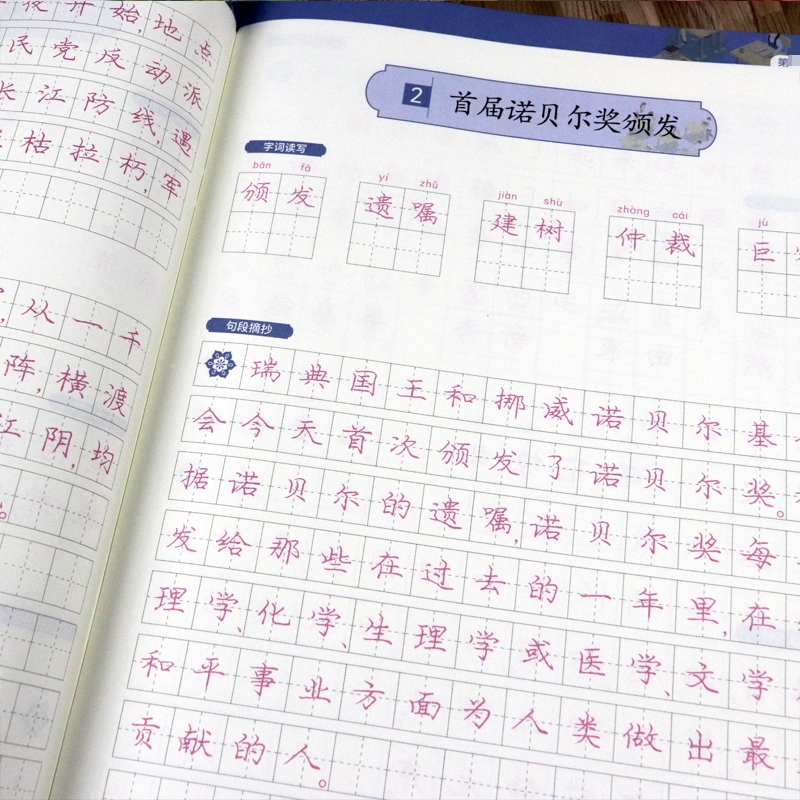 夜开始,地点
民党反动派
长江防线,遇
枯拉朽,军
,从一千
阵,横渡
江阴,均
。
第
2 首届诺贝尔奖颁发
字词读写
bān fā yí zhǔ jiàn shù zhòng cái jù
颁发 遗嘱 建树 仲裁 巨
句段摘抄
瑞典国王和挪威诺贝尔基
会今天首次颁发了诺贝尔奖。
据诺贝尔的遗嘱,诺贝尔奖每
发给那些在过去的一年里,在
理学、化学、生理学或医学、文学
和平事业方面为人类做出最
贡献的人。